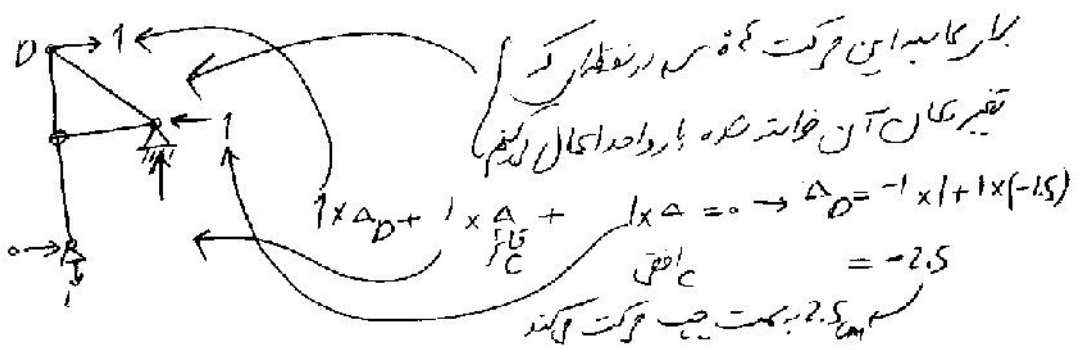 برای محاسبه این حرکت در نقطه‌ای که
تغییر مکان آن خواسته شده بار واحد اعمال می‌کنیم
D → 1
← 1
1×Δ_D + 1×Δ_C قائم + 1×Δ_C افقی = 0 → Δ_D = -1×1+1×(-1.5)
= -2.5
0 →
1
2.5 cm به سمت چپ حرکت می‌کند